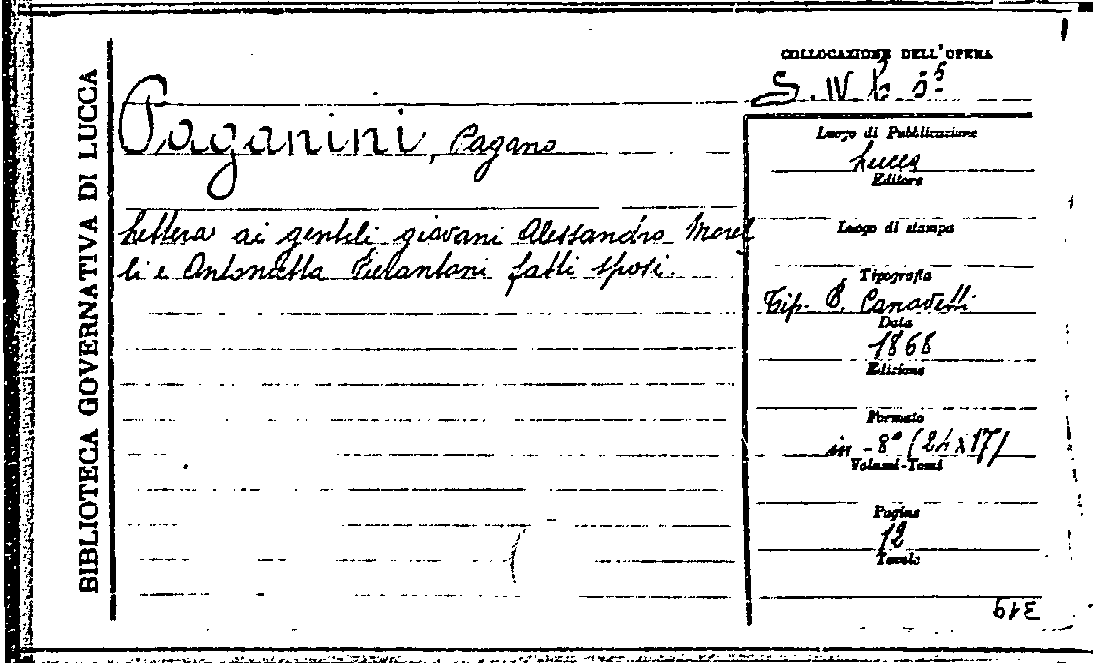 BIBLIOTECA GOVERNATIVA DI LUCCA
Paganini, Pagano
Lettera ai gentili giovani Alessandro Morel
li e Antonietta Pierantoni fatti sposi.
COLLOCAZIONE DELL'OPERA
S. IV b
Luogo di Pubblicazione
Lucca
Editore
Luogo di stampa
Tipografia
Tip. B. Canovetti
Data
1868
Edizione
Formato
in-8° (24x17)
Volumi-Tomi
Pagine
12
Tavole
319